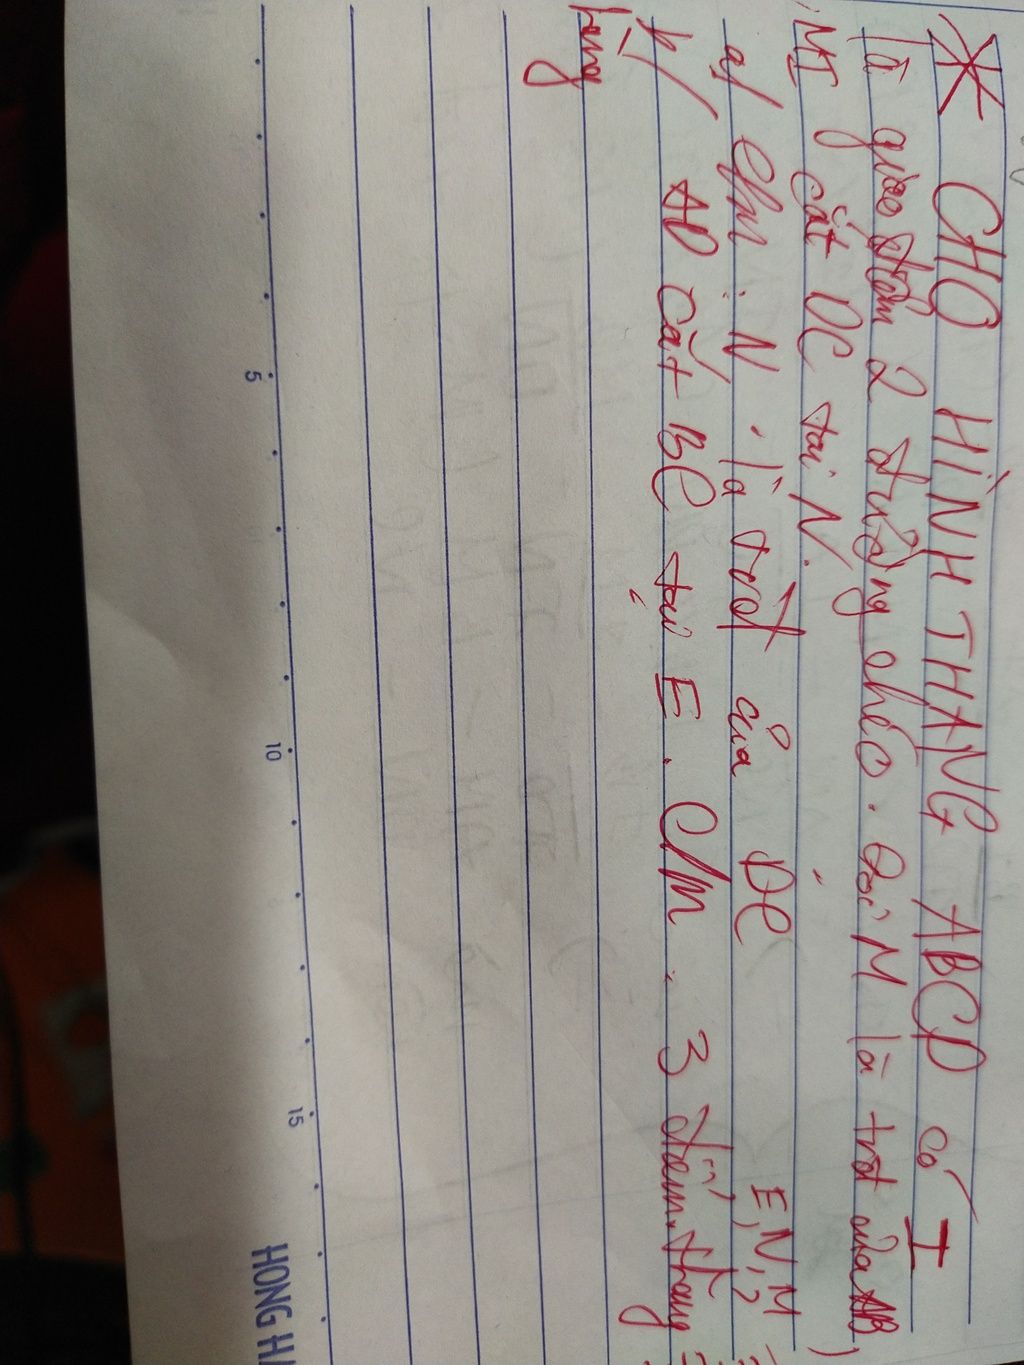 * CHO HÌNH THANG ABCD có I
là giao điểm 2 đường chéo. Gọi M là trđ của AB
, MI cắt DC tại N.
a/ Chm: N là trđ của DC
E, N, M
b/ AD cắt BC tại E. C/m. 3 điểm thẳng
hàng
5
10
15
HONG H